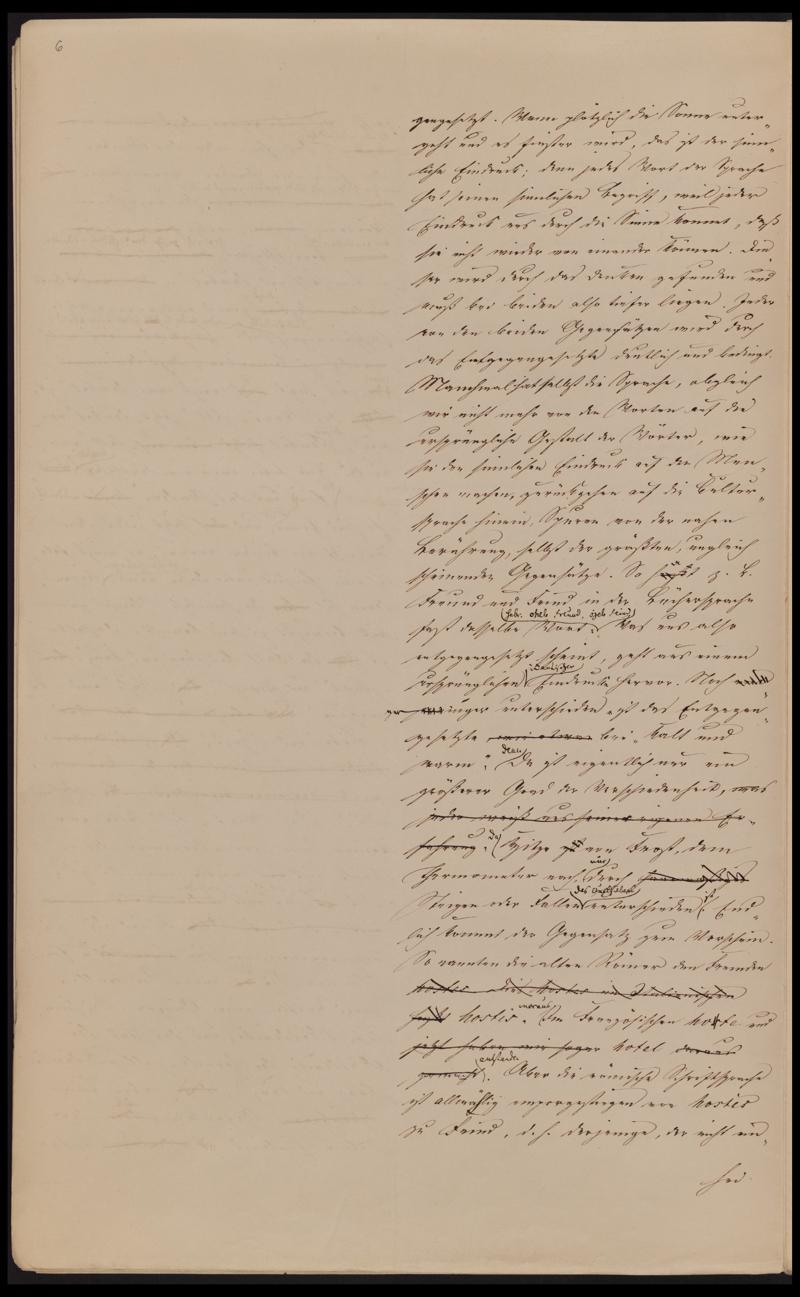 6
gengesetzt. Wenn plötzlich die Sonne unter-
geht und es finster wird, das ist der sinn-
liche Eindruck; denn jedes Wort der Sprache
hat seinen sinnlichen Begriff, weil jeder
Eindruck uns durch die Sinne kommt, daß
sie nicht wieder von einander können. Die-
ser wird durch das Denken gefunden und
muß bei beiden also tiefer liegen. Jeder
von den beiden Gegensätzen wird durch
das Entgegengesetzte deutlich und bedingt.
Manchmal hat selbst die Sprache, obgleich
wir nicht mehr von den Worten auf die
ursprüngliche Gestalt der Wörter, wie
sie den sinnlichen Eindruck auf den Men-
schen machen, zurückgehen auf die Cultur-
sprache hinein, Spuren von der nahen
Berührung, selbst der größten, ungleich
scheinenden Gegensätze. So ist z. B.
Freund und Feind in der Büchersprache
fast dasselbe Wort. Was uns also
entgegengesetzt scheint, geht aus einem
ursprünglichen Eindruck hervor. Noch
geringer unterschieden ist das Entgegen-
gesetzte bei „Kalt und
warm“. Denn Da ist eigentlich nur ein
größerer Grad der Verschiedenheit, was
jeder weiß aus seiner eigenen Er-
fahrung. da Hitze von Frost, dem
Thermometer nach, nur durch
Steigen oder Fallen des Quecksilbers unterschieden ist. End-
lich kommt der Gegensatz zum Vorschein.
So nannten die alten Römer den Fremden
hostis. woraus Im Französischen hoste und
jetzt haben wir sogar hotel daraus
gemacht entstanden. Aber die römische Schriftsprache
ist allmählig emporgestiegen von hostis
zu Feind, d. h. derjenige, der nicht ein-